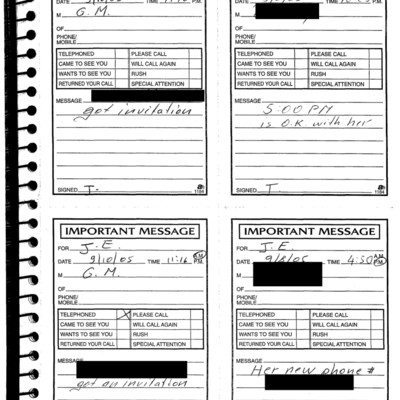 DATE 9/10/05 TIME P.M.
M G. M.
OF
PHONE/
MOBILE
TELEPHONED PLEASE CALL
CAME TO SEE YOU WILL CALL AGAIN
WANTS TO SEE YOU RUSH
RETURNED YOUR CALL SPECIAL ATTENTION
MESSAGE
got invitation
SIGNED J- 1184
DATE TIME P.M.
M
OF
PHONE/
MOBILE
TELEPHONED PLEASE CALL
CAME TO SEE YOU WILL CALL AGAIN
WANTS TO SEE YOU RUSH
RETURNED YOUR CALL SPECIAL ATTENTION
MESSAGE
5:00 PM
is O.K with her
SIGNED J 1184
IMPORTANT MESSAGE
FOR J.E.
DATE 9/10/05 TIME 11:16 A.M. P.M.
M G. M.
OF
PHONE/
MOBILE
TELEPHONED X PLEASE CALL
CAME TO SEE YOU WILL CALL AGAIN
WANTS TO SEE YOU RUSH
RETURNED YOUR CALL SPECIAL ATTENTION
MESSAGE
got an invitation
IMPORTANT MESSAGE
FOR J.E.
DATE 9/8/05 TIME 4:50 A.M. P.M.
M
OF
PHONE/
MOBILE
TELEPHONED PLEASE CALL
CAME TO SEE YOU WILL CALL AGAIN
WANTS TO SEE YOU RUSH
RETURNED YOUR CALL SPECIAL ATTENTION
MESSAGE
Her new phone #